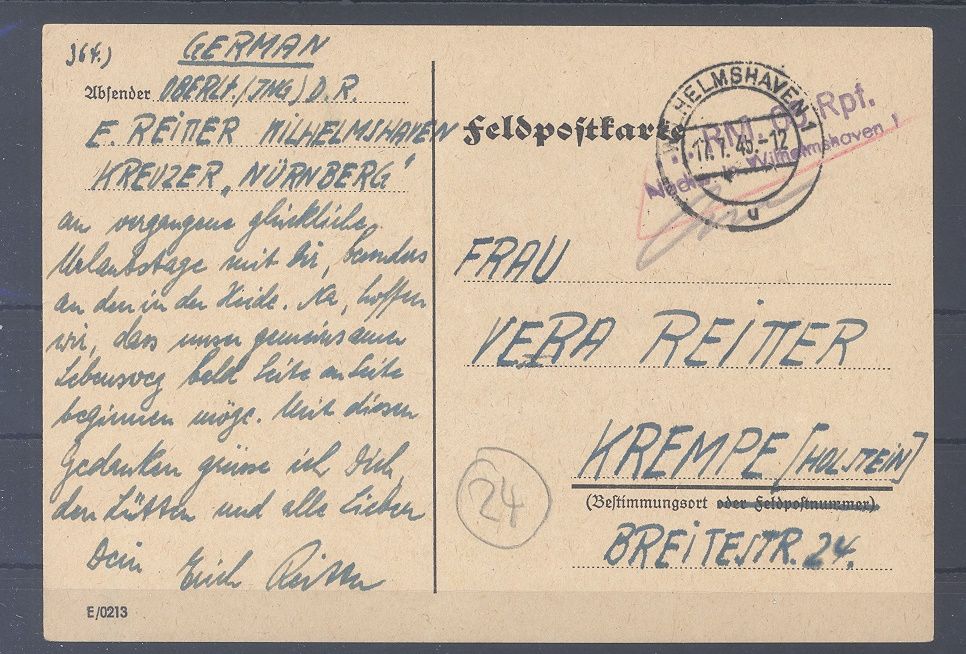 GERMAN
Absender OBERLT. (ING) D. R.
E. REITTER WILHELMSHAVEN
KREUZER „NÜRNBERG“
an vergangene glückliche
Urlaubstage mit Dir, besonders
an den in der Heide. Na, hoffen
wir, dass unser gemeinsamer
Lebensweg bald Seite an Seite
beginnen möge. Mit diesen
Gedanken grüsse ich Dich,
den Lütten und alle Lieben
Dein Erich Reitter
E/0213
Feldpostkarte
WILHELMSHAVEN 1
17.7.45.-12
u
RM. 06 Rpf.
Wilhelmshaven 1
FRAU
VERA REITTER
KREMPE [HOLSTEIN]
(Bestimmungsort oder Feldpostnummer)
BREITESTR. 24.
24